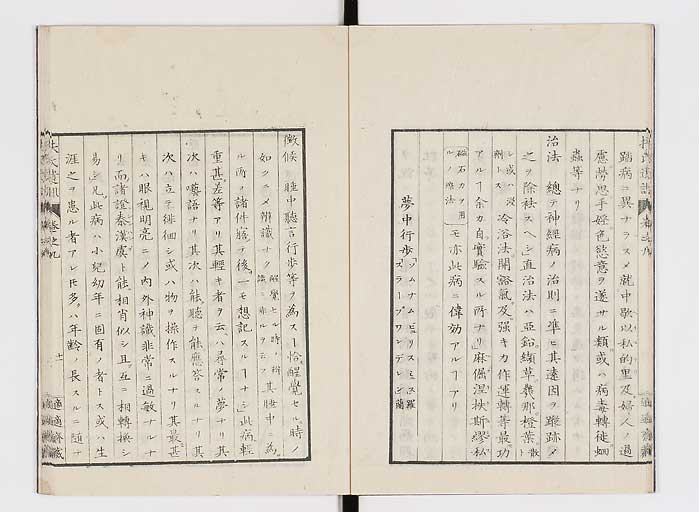 踏病ニ異ナラスメ就中歇以私的里及婦人ノ過
慮勞思手婬色慾意ヲ遂サル類或ハ病毒轉徙蛔
蟲等ナリ
治法 總テ神經病ノ治則ニ準ヒ其遠因ヲ蹤跡メ
之ヲ除袪スヘシ直治法ハ亞鉛纈草幾那橙葉散
シ或ハ浸劑トス冷浴法開豁氣及強キカ作運轉等最功
アルヿ余カ自實驗スル所ナリ麻倔涅扶斯繆私
磁石力ヲ用ルノ療法モ亦此病ニ偉効アルヿアリ
夢中行歩 ソムナムビリスミュス羅 スラープワンデレン蘭
徴候 睡中聽言行歩等ヲ為スヿ恰醒覺セル時ノ
如クニメ辨識ナク
ル所ノ諸件寤テ後一モ想記スルヿナシ此病輕
重甚差等アリ其輕キ者ヲ云ハ尋常ノ夢ナリ其
次ハ囈語ナリ其次ハ能聽キ能應答スルナリ其
次ハ立テ徘徊シ或ハ物ヲ操作スルナリ其最甚
キハ眼視明亮ニメ内外神識非常ニ過敏ナルナ
リ而諸證泰漢虞ト能相肖似シ且互ニ相轉換シ
易シ凡此病ハ小紀幼年ニ固有ノ者トス或ハ生
涯之ヲ患ル者アレ𪜈多ハ年齡ノ長スルニ隨テ
扶氏遺訓 卷之九 十一 適適齋藏